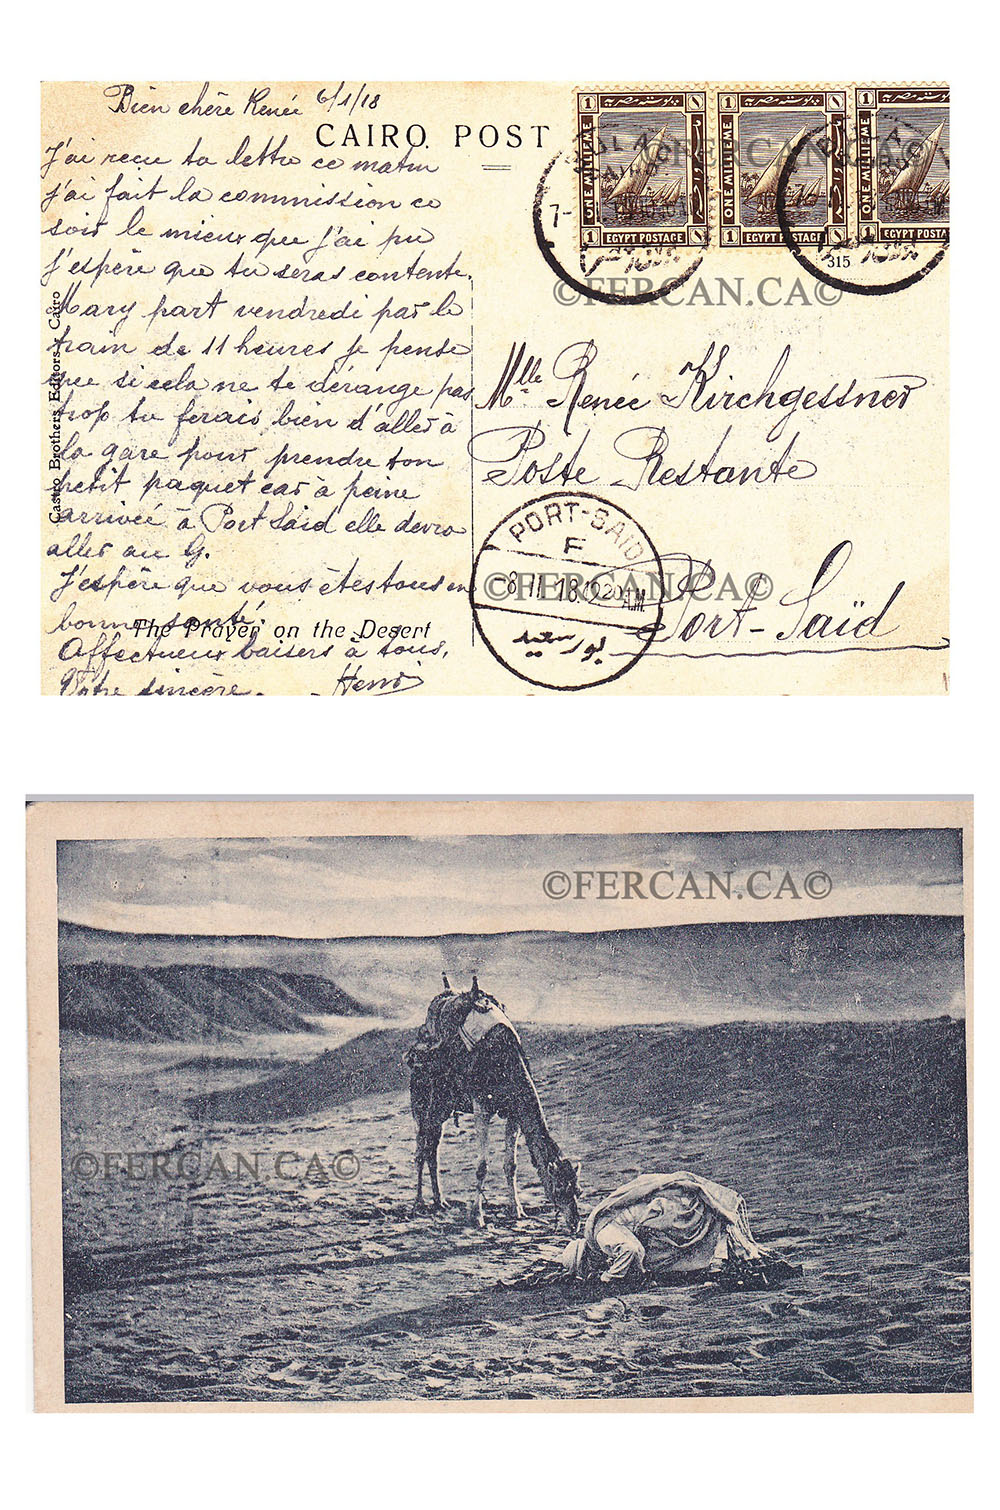 Bien chère Renée 6/1/18
CAIRO POST
J'ai reçu ta lettre ce matin
j'ai fait la commission ce
soir le mieux que j'ai pu
j'espère que tu seras contente.
Mary part vendredi par le
train de 11 heures je pense
que si cela ne te dérange pas
trop tu ferais bien d'aller à
la gare pour prendre ton
petit paquet car à peine
arrivée à Port Saïd elle devra
aller au G.
J'espère que vous êtes tous en
bonne santé.
Affectueux baisers à tous.
Votre sincère.
Henri
Castro Brothers Editors - Cairo
The Prayer on the Desert
1 1
ONE MILLIEME
1 EGYPT POSTAGE 1
1 1
ONE MILLIEME
1 EGYPT POSTAGE 1
1
ONE MILLIEME
1 EGYPT POSTA
BULAC
CAIRO
7-
315
©FERCAN.CA©
©FERCAN.CA©
Mlle Renée Kirchgessner
Poste Restante
Port-Saïd
PORT-SAID
F
-8.II.18.
A.M.
بور سعيد
©FERCAN.CA©
©FERCAN.CA©
©FERCAN.CA©